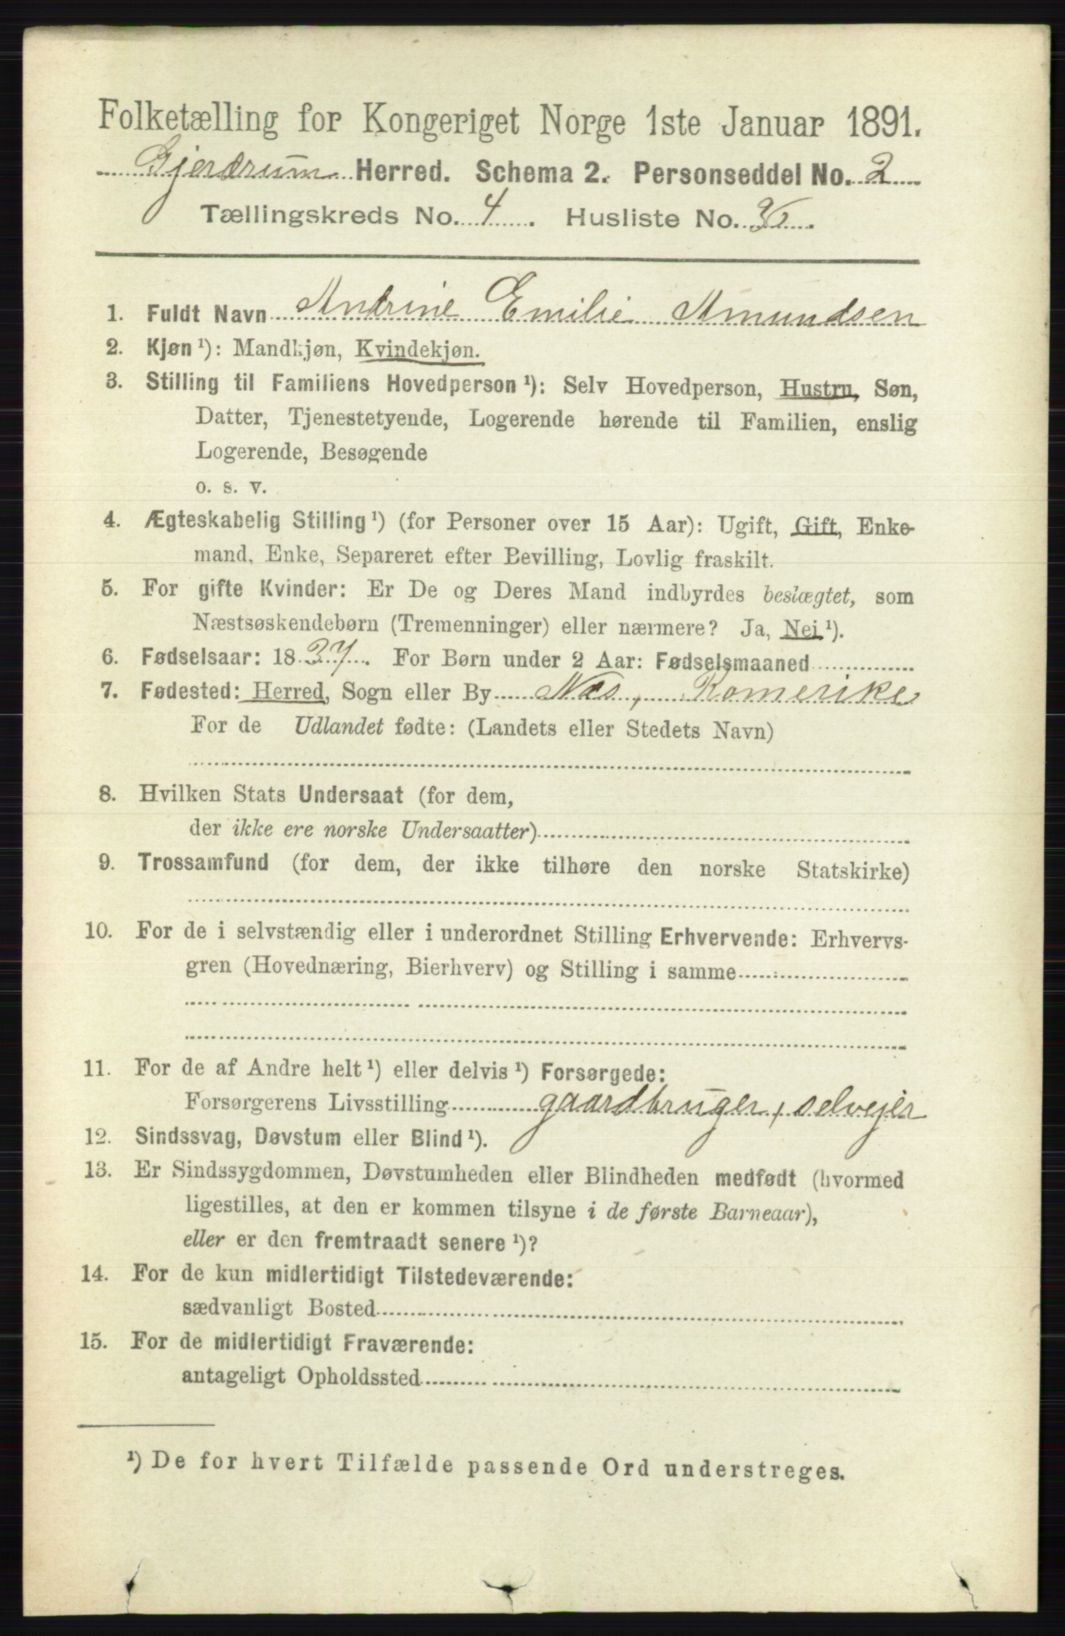 Folketælling for Kongeriget Norge 1ste Januar 1891.
Gjerdrum Herred. Schema 2. Personseddel No. 2
Tællingskreds No. 4. Husliste No.
1. Fuldt Navn Andrine Emilie Amundsen
2. Kjøn ¹): Mandkjøn, Kvindekjøn.
3. Stilling til Familiens Hovedperson ¹): Selv Hovedperson, Hustru, Søn,
Datter, Tjenestetyende, Logerende hørende til Familien, enslig
Logerende, Besøgende
o. s. v.
4. Ægteskabelig Stilling ¹) (for Personer over 15 Aar): Ugift, Gift, Enke-
mand, Enke, Separeret efter Bevilling, Lovlig fraskilt.
5. For gifte Kvinder: Er De og Deres Mand indbyrdes beslægtet, som
Næstsøskendebørn (Tremenninger) eller nærmere? Ja, Nei ¹).
6. Fødselsaar: 1837. For Børn under 2 Aar: Fødselsmaaned
7. Fødested: Herred, Sogn eller By Næs, Romerike
For de Udlandet fødte: (Landets eller Stedets Navn)
8. Hvilken Stats Undersaat (for dem,
der ikke ere norske Undersaatter)
9. Trossamfund (for dem, der ikke tilhøre den norske Statskirke)
10. For de i selvstændig eller i underordnet Stilling Erhvervende: Erhvervs-
gren (Hovednæring, Bierhverv) og Stilling i samme
11. For de af Andre helt ¹) eller delvis ¹) Forsørgede:
Forsørgerens Livsstilling gaardbruger, selvejer
12. Sindssvag, Døvstum eller Blind ¹).
13. Er Sindssygdommen, Døvstumheden eller Blindheden medfødt (hvormed
ligestilles, at den er kommen tilsyne i de første Barneaar),
eller er den fremtraadt senere ¹)?
14. For de kun midlertidigt Tilstedeværende:
sædvanligt Bosted
15. For de midlertidigt Fraværende:
antageligt Opholdssted
¹) De for hvert Tilfælde passende Ord understreges.